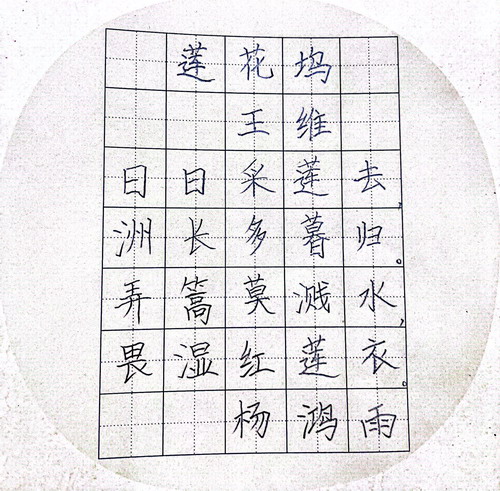 莲花坞
王维
日日采莲去，
洲长多暮归。
弄篙莫溅水，
畏湿红莲衣。
杨鸿雨